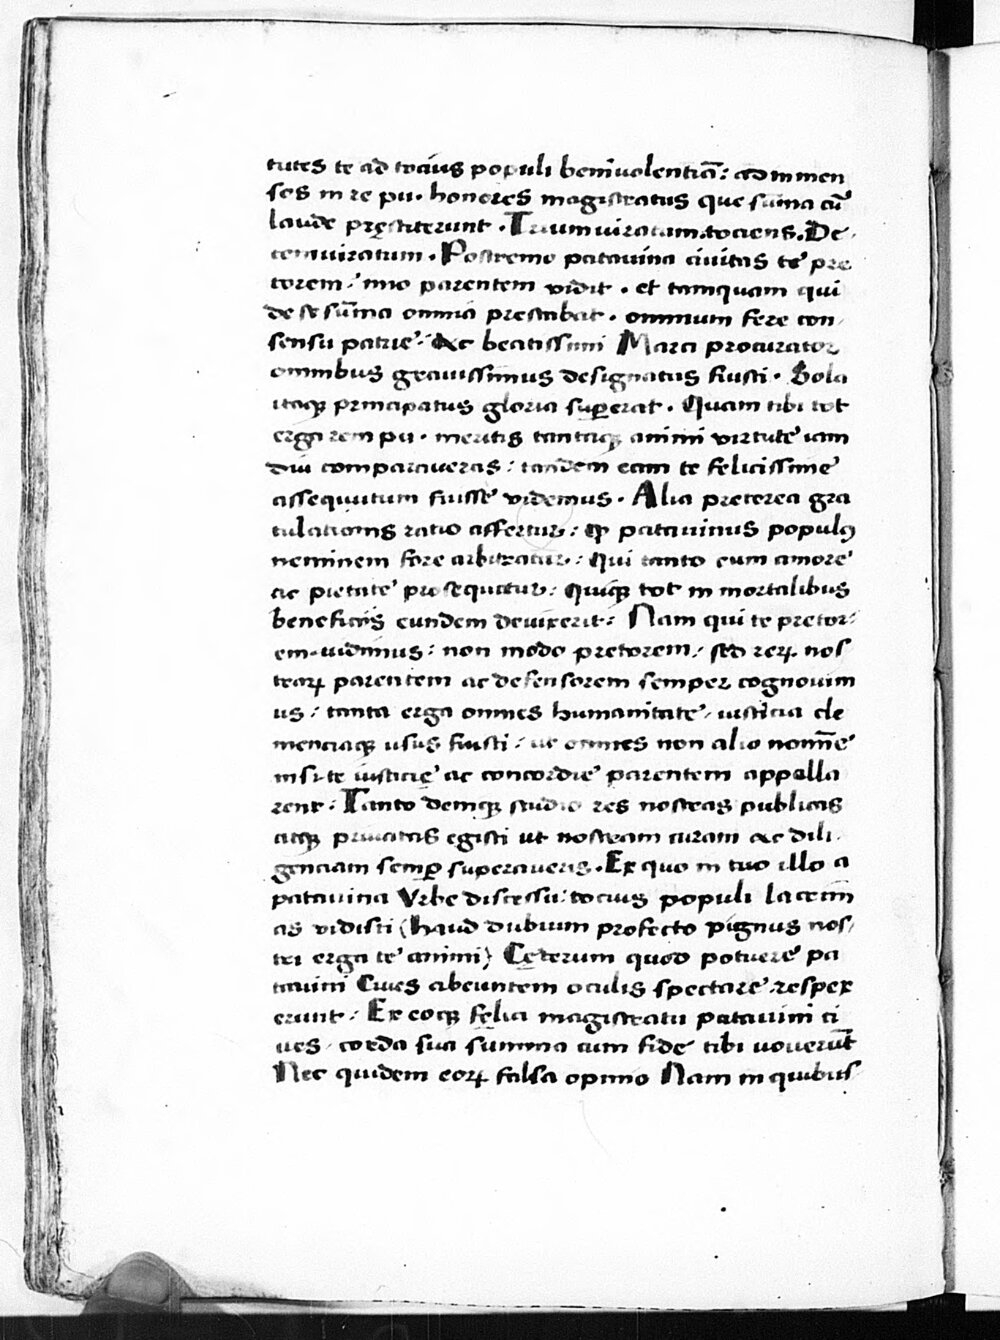 tutes te ad tocius populi beniuolentiã: ad inmen
sos in re pu. honores magistratus que suma cũ
laude pręstiterunt. Triumuiratum tociens. De
cemuiratum. Postremo patauina ciuitas te pre
torem: imo parentem vidit. et tamquam qui
de se sũma omnia prestabat. omnium fere con
sensu patrie: Ac beatissimi Marci procurator
omnibus grauissimus designatus fuisti. Sola
itaqꝫ principatus gloria suꝑerat. Quam tibi tot
erga rem pu. meritis tantaqꝫ animi virtute iam
diu comparaueras: tandem eam te felicissime
assequutum fuisse videmus. Alia preterea gra
tulationis ratio affertur: ꝙ patauinus populꝰ
neminem fore arbitratur: Qui tanto eum amore
ac pietate prosequatur: Quiqꝫ tot in mortalibus
beneficijs eundem deuixerit: Nam qui te pretor
em uidimus: non modo pretorem: sed reꝝ nos
traꝝ parentem ac defensorem semper cognouim
us: tanta erga omnes humanitate, iusticia cle
menciaqꝫ usus fuisti: ut omnes non alio nomĩe
nisi te iusticię ac concordie parentem appella
rent: Tanto deniqꝫ studio res nostras publicas
atqꝫ priuatas egisti ut nostram curam ac dili
genciam semꝑ superaueris. Ex quo in tuo illo a
patauina Vrbe discessu: tocius populi lacrim
as vidisti (haud dubium profecto pignus nos
tri erga te animi) Cęterum quod potuere pa
tauini Ciues abeuntem oculis spectare respex
erunt: Ex eoqꝫ felici magistratu patauini ci
ues corda sua summa cum fide tibi uouerũt
Nec quidem eoꝝ falsa opinio Nam in quibus